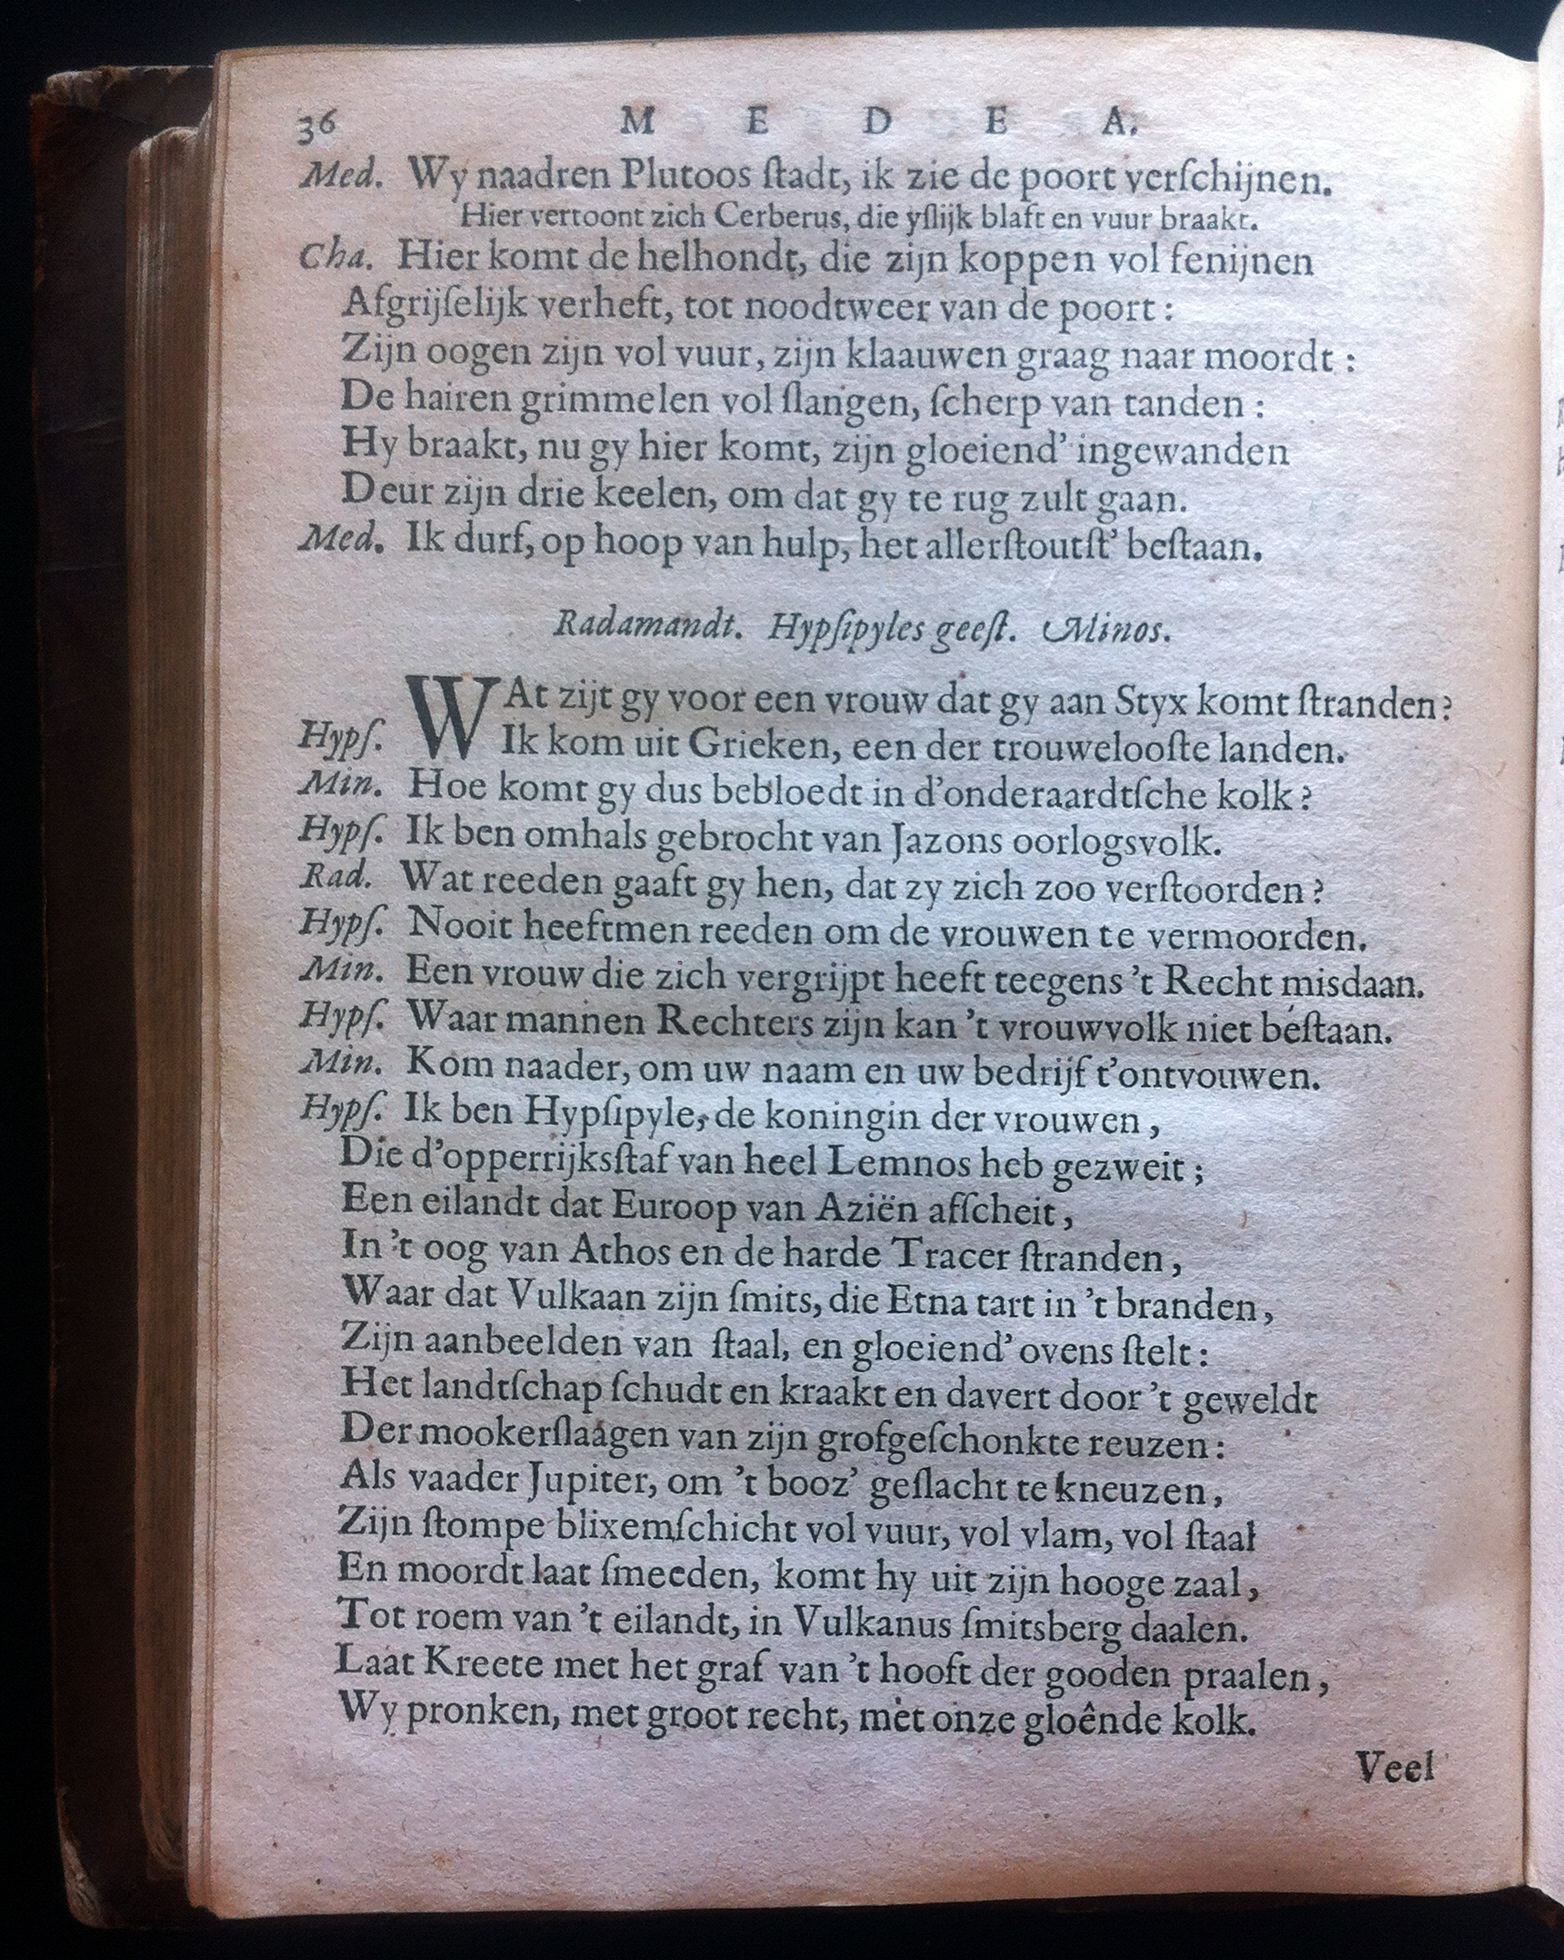 36 M E D E A.
Med. Wy naadren Plutoos ſtadt, ik zie de poort verſchijnen.
Hier vertoont zich Cerberus, die yſlijk blaft en vuur braakt.
Cha. Hier komt de helhondt, die zijn koppen vol fenijnen
Afgrijſelijk verheft, tot noodtweer van de poort:
Zijn oogen zijn vol vuur, zijn klaauwen graag naar moordt:
De hairen grimmelen vol ſlangen, ſcherp van tanden:
Hy braakt, nu gy hier komt, zijn gloeiend' ingewanden
Deur zijn drie keelen, om dat gy te rug zult gaan.
Med. Ik durf, op hoop van hulp, het allerſtoutſt' beſtaan.
Radamandt. Hypſipyles geeſt. Minos.
WAt zijt gy voor een vrouw dat gy aan Styx komt ſtranden?
Hypſ. Ik kom uit Grieken, een der trouwelooſte landen.
Min. Hoe komt gy dus bebloedt in d'onderaardtſche kolk?
Hypſ. Ik ben omhals gebrocht van Jazons oorlogsvolk.
Rad. Wat reeden gaaft gy hen, dat zy zich zoo verſtoorden?
Hypſ. Nooit heeftmen reeden om de vrouwen te vermoorden.
Min. Een vrouw die zich vergrijpt heeft teegens 't Recht misdaan.
Hypſ. Waar mannen Rechters zijn kan 't vrouwvolk niet beſtaan.
Min. Kom naader, om uw naam en uw bedrijf t'ontvouwen.
Hypſ. Ik ben Hypſipyle, de koningin der vrouwen,
Die d'opperrijksſtaf van heel Lemnos heb gezweit;
Een eilandt dat Euroop van Aziën afſcheit,
In 't oog van Athos en de harde Tracer ſtranden,
Waar dat Vulkaan zijn ſmits, die Etna tart in 't branden,
Zijn aanbeelden van ſtaal, en gloeiend' ovens ſtelt:
Het landtſchap ſchudt en kraakt en davert door 't geweldt
Der mookerſlaagen van zijn grofgeſchonkte reuzen:
Als vaader Jupiter, om 't booz' geſlacht te kneuzen,
Zijn ſtompe blixemſchicht vol vuur, vol vlam, vol ſtaal
En moordt laat ſmeeden, komt hy uit zijn hooge zaal,
Tot roem van 't eilandt, in Vulkanus ſmitsberg daalen.
Laat Kreete met het graf van 't hooft der gooden praalen,
Wy pronken, met groot recht, met onze gloênde kolk.
Veel